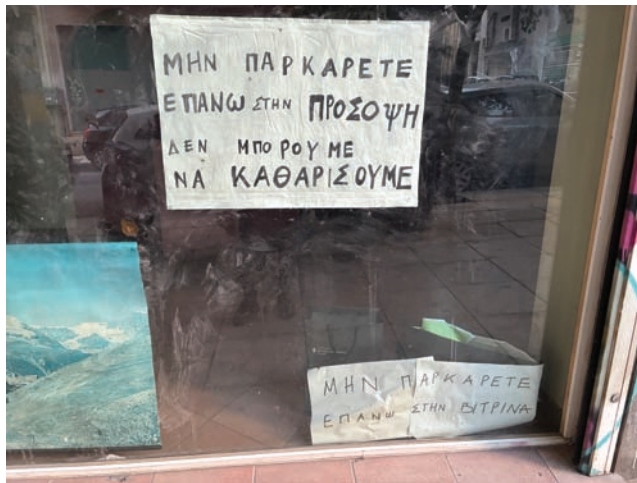 ΜΗΝ ΠΑΡΚΑΡΕΤΕ
ΕΠΑΝΩ ΣΤΗΝ ΠΡΟΣΟΨΗ
ΔΕΝ ΜΠΟΡΟΥΜΕ
ΝΑ ΚΑΘΑΡΙΣΟΥΜΕ
ΜΗΝ ΠΑΡΚΑΡΕΤΕ
ΕΠΑΝΩ ΣΤΗΝ ΒΙΤΡΙΝΑ